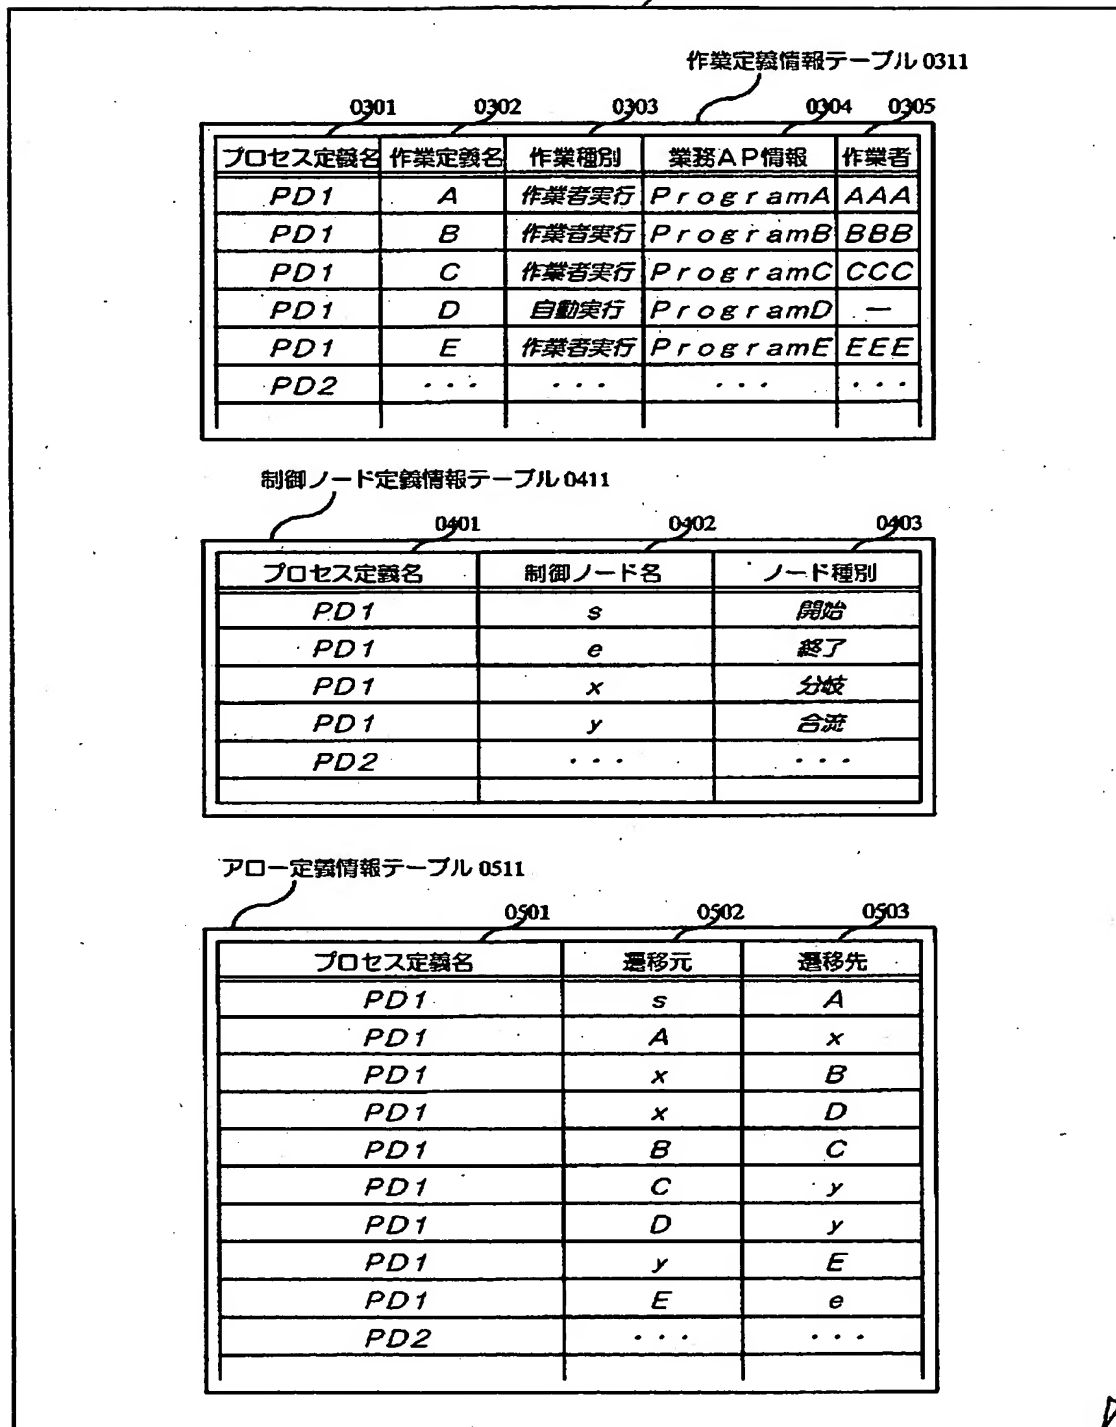 作業定義情報テーブル 0311
0301 0302 0303 0304 0305
プロセス定義名 作業定義名 作業種別 業務AP情報 作業者
PD1 A 作業者実行 ProgramA AAA
PD1 B 作業者実行 ProgramB BBB
PD1 C 作業者実行 ProgramC CCC
PD1 D 自動実行 ProgramD —
PD1 E 作業者実行 ProgramE EEE
PD2 ・・・ ・・・ ・・・ ・・・
制御ノード定義情報テーブル 0411
0401 0402 0403
プロセス定義名 制御ノード名 ノード種別
PD1 s 開始
PD1 e 終了
PD1 x 分岐
PD1 y 合流
PD2 ・・・ ・・・
アロー定義情報テーブル 0511
0501 0502 0503
プロセス定義名 遷移元 遷移先
PD1 s A
PD1 A x
PD1 x B
PD1 x D
PD1 B C
PD1 C y
PD1 D y
PD1 y E
PD1 E e
PD2 ・・・ ・・・